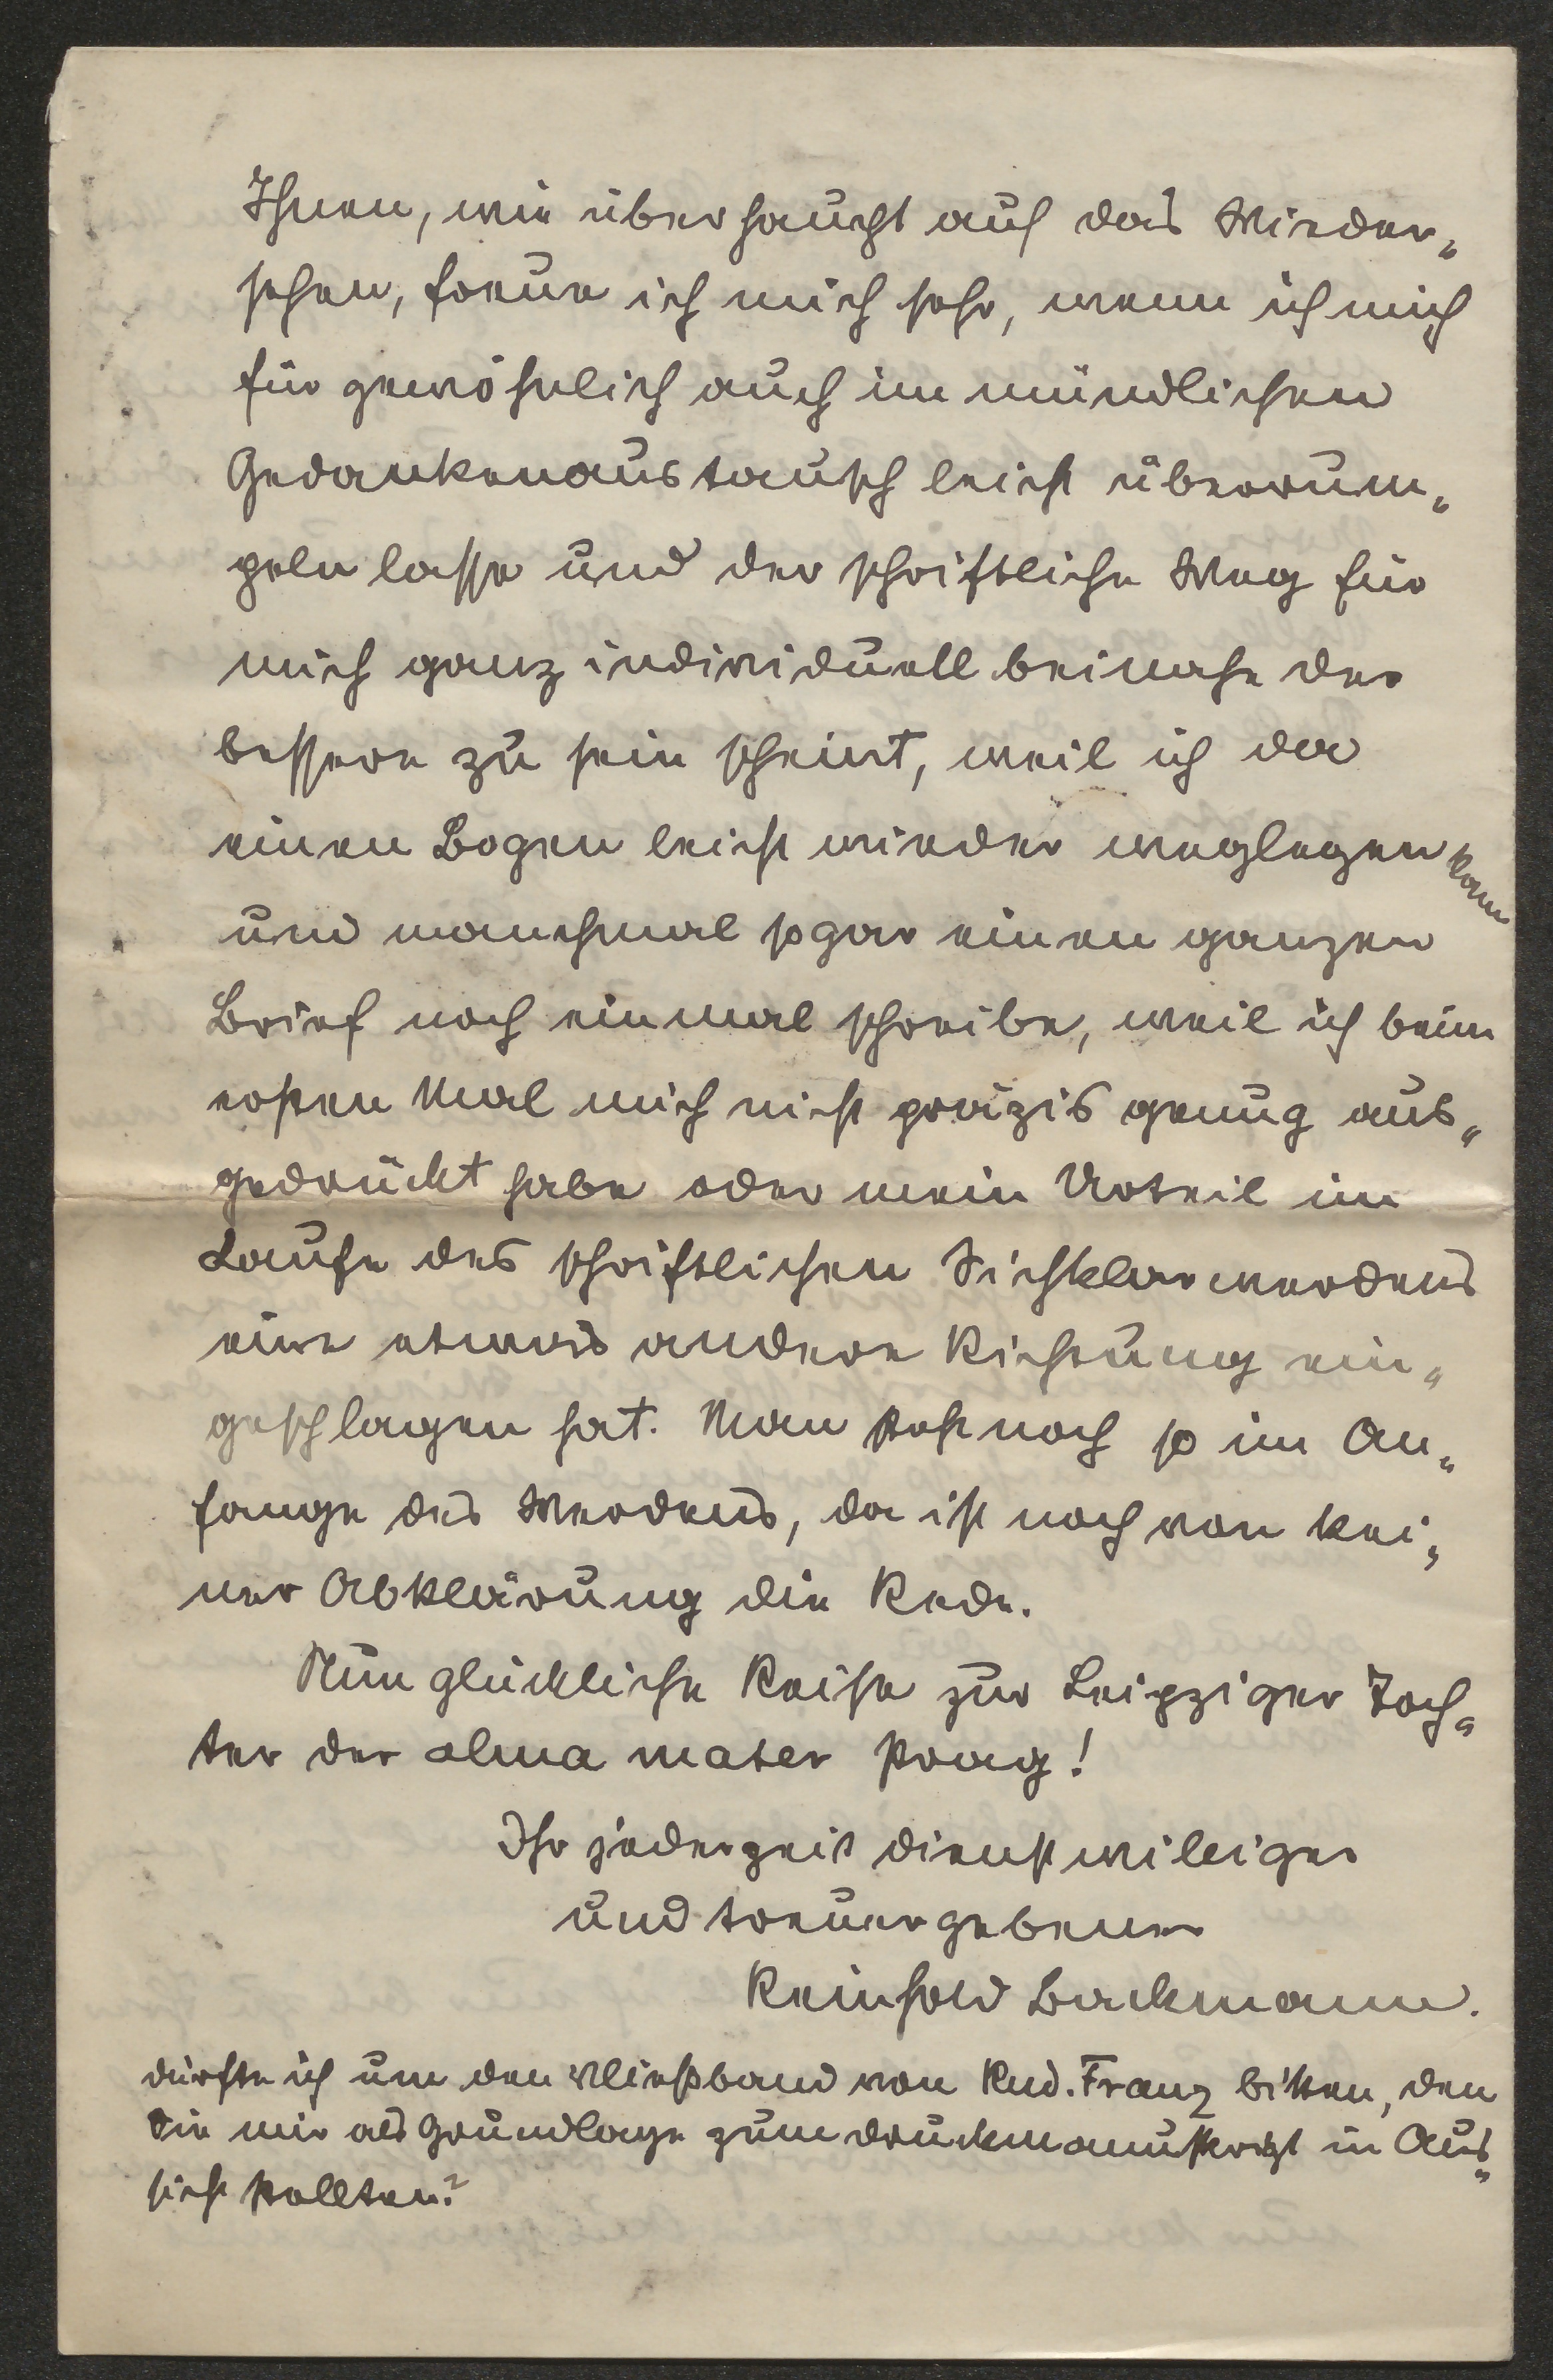 Ihnen, wie überhaupt auf das Wieder„
sehen, freue ich mich sehr, wenn ich mich
für gewöhnlich auch im mündlichen
Gedankenaustausch leicht überrum„
peln lasse und der schriftliche Weg für
mich ganz individuell beinahe der
bessere zu sein scheint, weil ich da
einen Bogen leicht wieder weglegen kann
und manchmal sogar einen ganzen
Brief noch einmal schreibe, weil ich beim
ersten Mal mich nicht präzis genug aus„
gedrückt habe oder mein Urteil im
Laufe des schriftlichen Sichklarwerdens
eine etwas andere Richtung ein„
geschlagen hat. Man steht noch so im An„
fange des Werdens, da ist noch von kei„
ner Abklärung die Rede.
Nun glückliche Reise zur Leipziger Toch„
ter der alma mater Prag!
Ihr jederzeit dienstwilliger
und treuergebener
Reinhold Backmann.
Dürfte ich um den Vließband von Rud. Franz bitten, den
Sie mir als Grundlage zum Druckmanuskript in Aus„
sicht stellten?